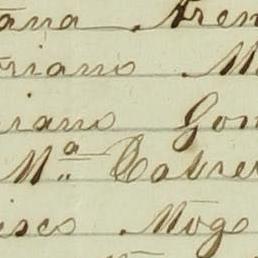 tana Aren
oriano M
riano Gon
Mª Cabre
isco Mogo